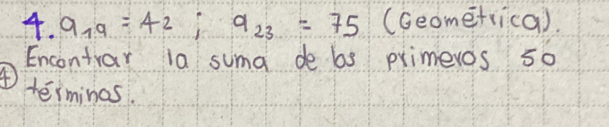 4. a₁₉ = 42 ; a₂₃ = 75 (Geométrica).
Encontrar la suma de los primeros 50
④ términos.